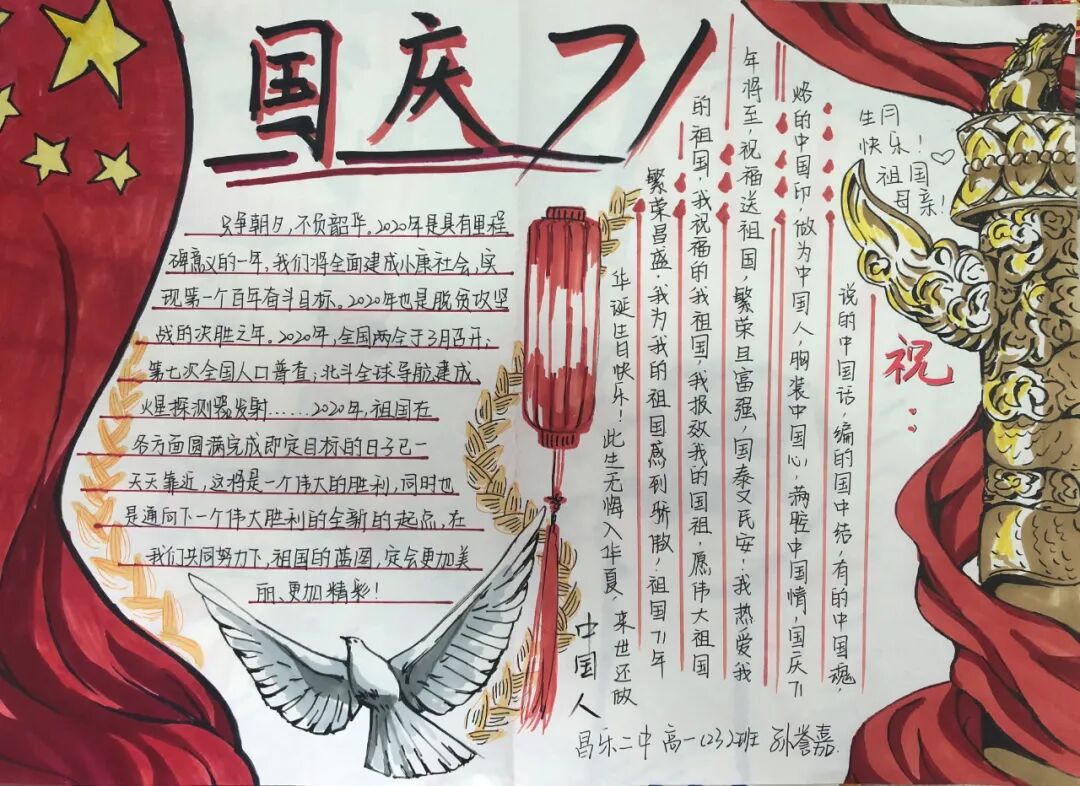 国庆71
只争朝夕,不负韶华。2020年是具有里程
碑意义的一年,我们将全面建成小康社会,实
现第一个百年奋斗目标。2020年也是脱贫攻坚
战的决胜之年。2020年,全国两会于3月召开;
第七次全国人口普查;北斗全球导航建成,
火星探测器发射……2020年,祖国在
各方面圆满完成即定目标的日子已一
天天靠近,这将是一个伟大的胜利,同时也
是通向下一个伟大胜利的全新的起点,在
我们共同努力下,祖国的蓝图,定会更加美
丽、更加精彩!
生日
快乐!
祖国
母亲!
祝:
说的中国话,编的国中结,有的中国魂,
烙的中国印,做为中国人,胸装中国心,满腔中国情,国庆71
年将至,祝福送祖国,繁荣且富强,国泰又民安!我热爱我
的祖国,我祝福的我祖国,我报效我的国祖,愿伟大祖国
繁荣昌盛.我为我的祖国感到骄傲,祖国71年
华诞佳日快乐!此生无悔入华夏,来世还做
中国人
昌乐二中高一(23)2班 孙誉嘉.